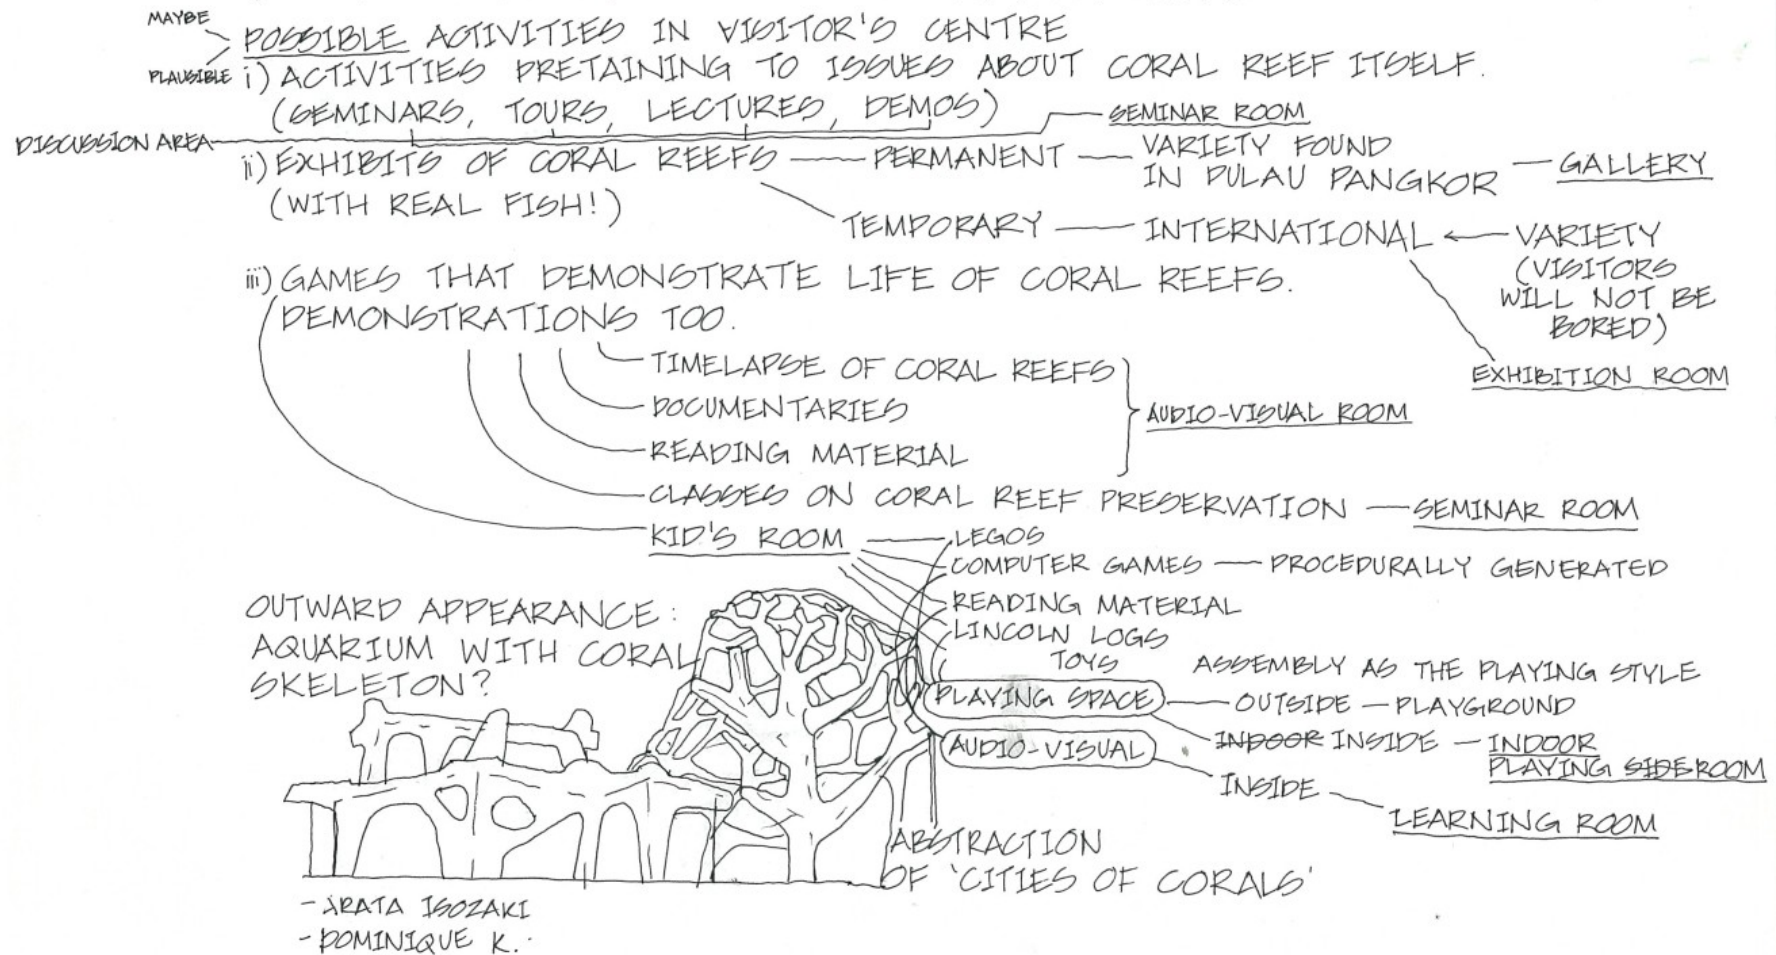 MAYBE
POSSIBLE ACTIVITIES IN VISITOR'S CENTRE
PLAUSIBLE
i) ACTIVITIES PRETAINING TO ISSUES ABOUT CORAL REEF ITSELF.
(SEMINARS, TOURS, LECTURES, DEMOS)
SEMINAR ROOM
DISCUSSION AREA
ii) EXHIBITS OF CORAL REEFS
(WITH REAL FISH!)
PERMANENT
VARIETY FOUND
IN PULAU PANGKOR
GALLERY
TEMPORARY
INTERNATIONAL
VARIETY
(VISITORS
WILL NOT BE
BORED)
EXHIBITION ROOM
iii) GAMES THAT DEMONSTRATE LIFE OF CORAL REEFS.
DEMONSTRATIONS TOO.
TIMELAPSE OF CORAL REEFS
DOCUMENTARIES
READING MATERIAL
AUDIO-VISUAL ROOM
CLASSES ON CORAL REEF PRESERVATION
SEMINAR ROOM
KID'S ROOM
LEGOS
COMPUTER GAMES
PROCEDURALLY GENERATED
READING MATERIAL
LINCOLN LOGS
TOYS
ASSEMBLY AS THE PLAYING STYLE
PLAYING SPACE
OUTSIDE - PLAYGROUND
INDOOR INSIDE - INDOOR
PLAYING SIDEROOM
AUDIO-VISUAL
INSIDE
LEARNING ROOM
OUTWARD APPEARANCE:
AQUARIUM WITH CORAL
SKELETON?
ABSTRACTION
OF 'CITIES OF CORALS'
- ARATA ISOZAKI
- DOMINIQUE K.